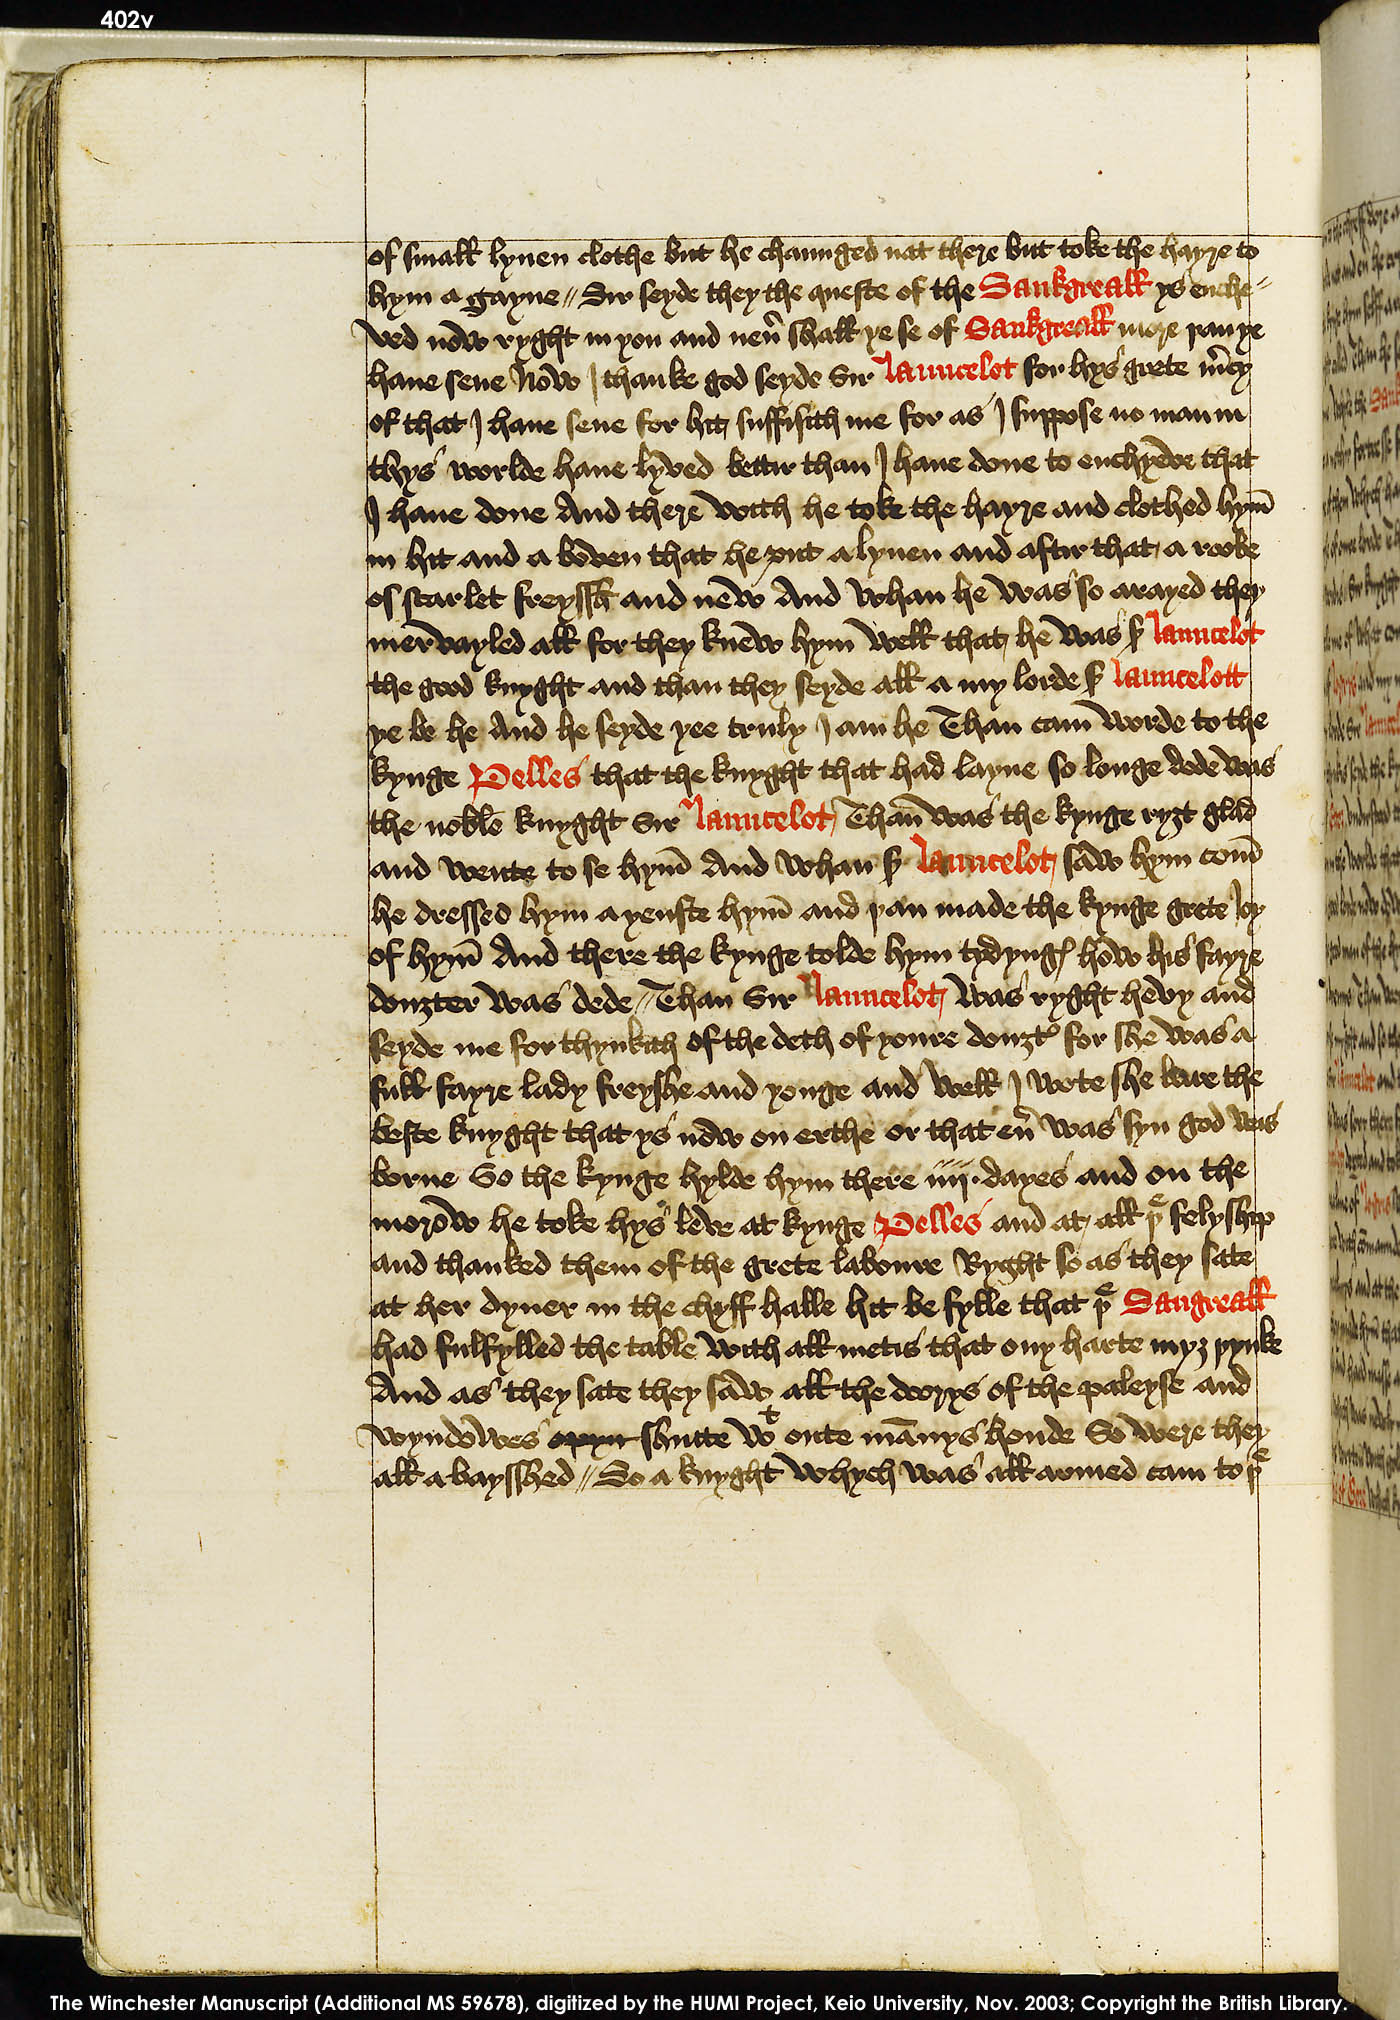 402v
of small lynen clothe but he chaunged nat there but toke the hayre to
hym a gayne // Sir seyde they the queste of the Sankgreall ys enche-
ved now ryght in you and neu̾ shall ye se of Sankgreall more þan ye
haue sene Now I thanke god seyde Sir Launcelot for hys grete m̾cy
of that I haue sene for hit suffisith me for as I suppose no man in
thys worlde haue lyved bettir than I haue done to enchyeve that
I haue done And there with he toke the hayre and clothed hym̄
in hit and a boven that he put a lynen and aftir that a roobe
of scarlet freyssh and new And whan he was so arayed they
mervayled all for they knew hym well that he was sr Launcelot
the good knyght and than they seyde all a my lorde sr Launcelott
ye be he And he seyde yee truly I am he Than cam worde to the
kynge Pelles that the knyght that had layne so longe dede was
the noble knyght Sir Launcelot Than̄ was the kynge ryȝt glad
and wente to se hym̄ And whan sr Launcelot saw hym com̄
he dressed hym a yenste hym̄ and þan made the kynge grete Joy
of hym̄ And there the kynge tolde hym tydyngꝭ how his fayre
douȝter was dede // Than Sir Launcelot was ryght hevy and
seyde me for thynkith of the deth of youre douȝt̾ for she was a
full fayre lady freyshe and yonge and well I wote she bare the
beste knyght that ys now on erthe or that eu̾ was syn god was
borne So the kynge hylde hym there iiij. dayes and on the
morow he toke hys leve at kynge Pelles and at all þe felyshyp
and thanked them of the grete laboure Ryght so as they sate
at her dyner in the chyff halle hit be fylle that þe Sangreall
had fulfylled the table with all metis that ony harte myȝ þynke
And as they sate they saw all the dorys of the paleyse and
wyndowes opyn shutte wt oute mānys honde So were they
all a baysshed // So a knyght whych was all armed cam to þe
The Winchester Manuscript (Additional MS 59678), digitized by the HUMI Project, Keio University, Nov. 2003; Copyright the British Library.